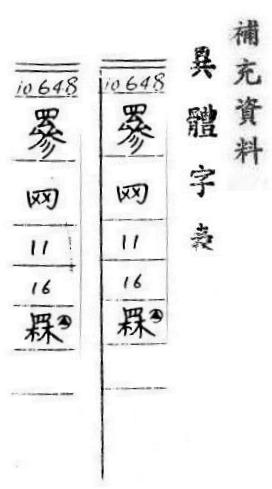 補充資料
異體字表
10648
网
11
16
罧
10648
网
11
16
罧